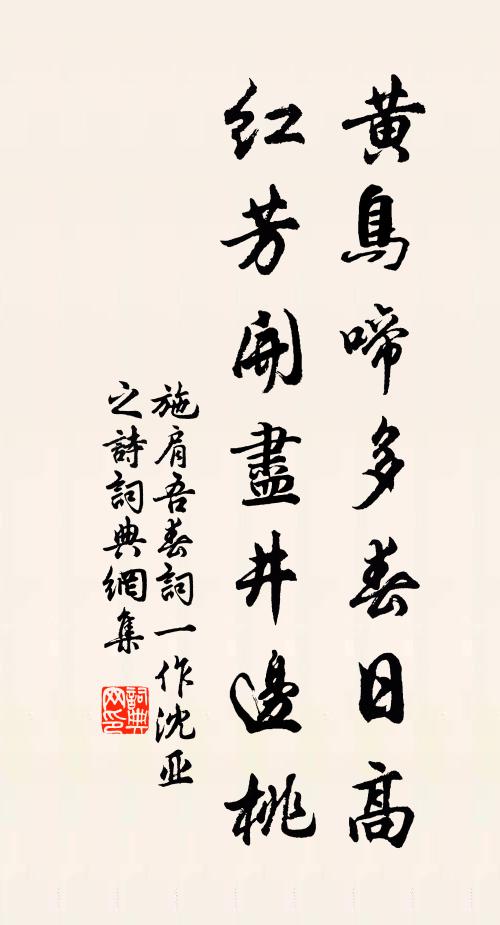 黄鳥啼多春日高
红芳開盡井邊桃
施肩吾春詞一作沈亚
之詩詞典網集
詞典
网印